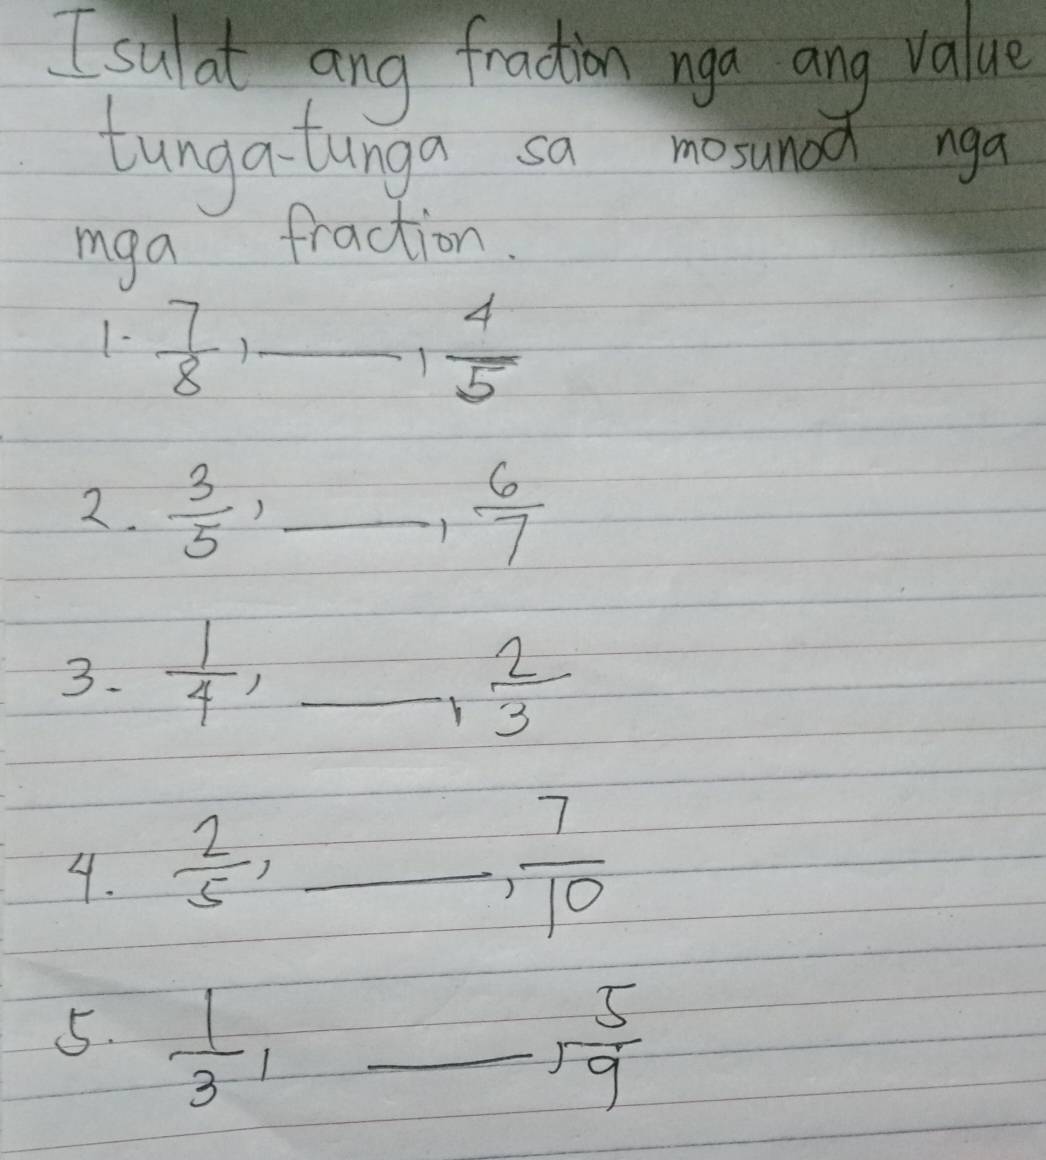 Isulat ang fraction nga ang value
tunga-tunga sa mosunod nga
mga fraction.
1. 7/8, ____, 4/5
2. 3/5, ____, 6/7
3. 1/4, ____, 2/3
4. 2/5, ____, 7/10
5. 1/3, ____, 5/9